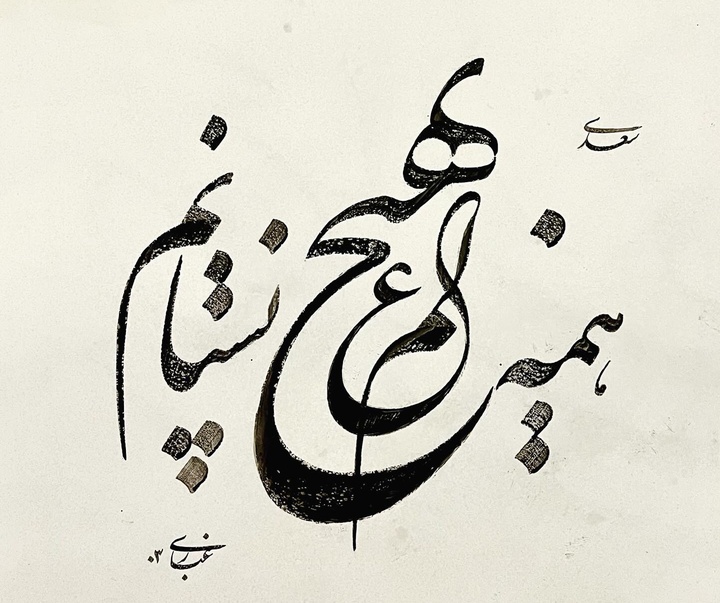 سعدی
همه عالم به هیچ نستانیم
غباری ۰۳